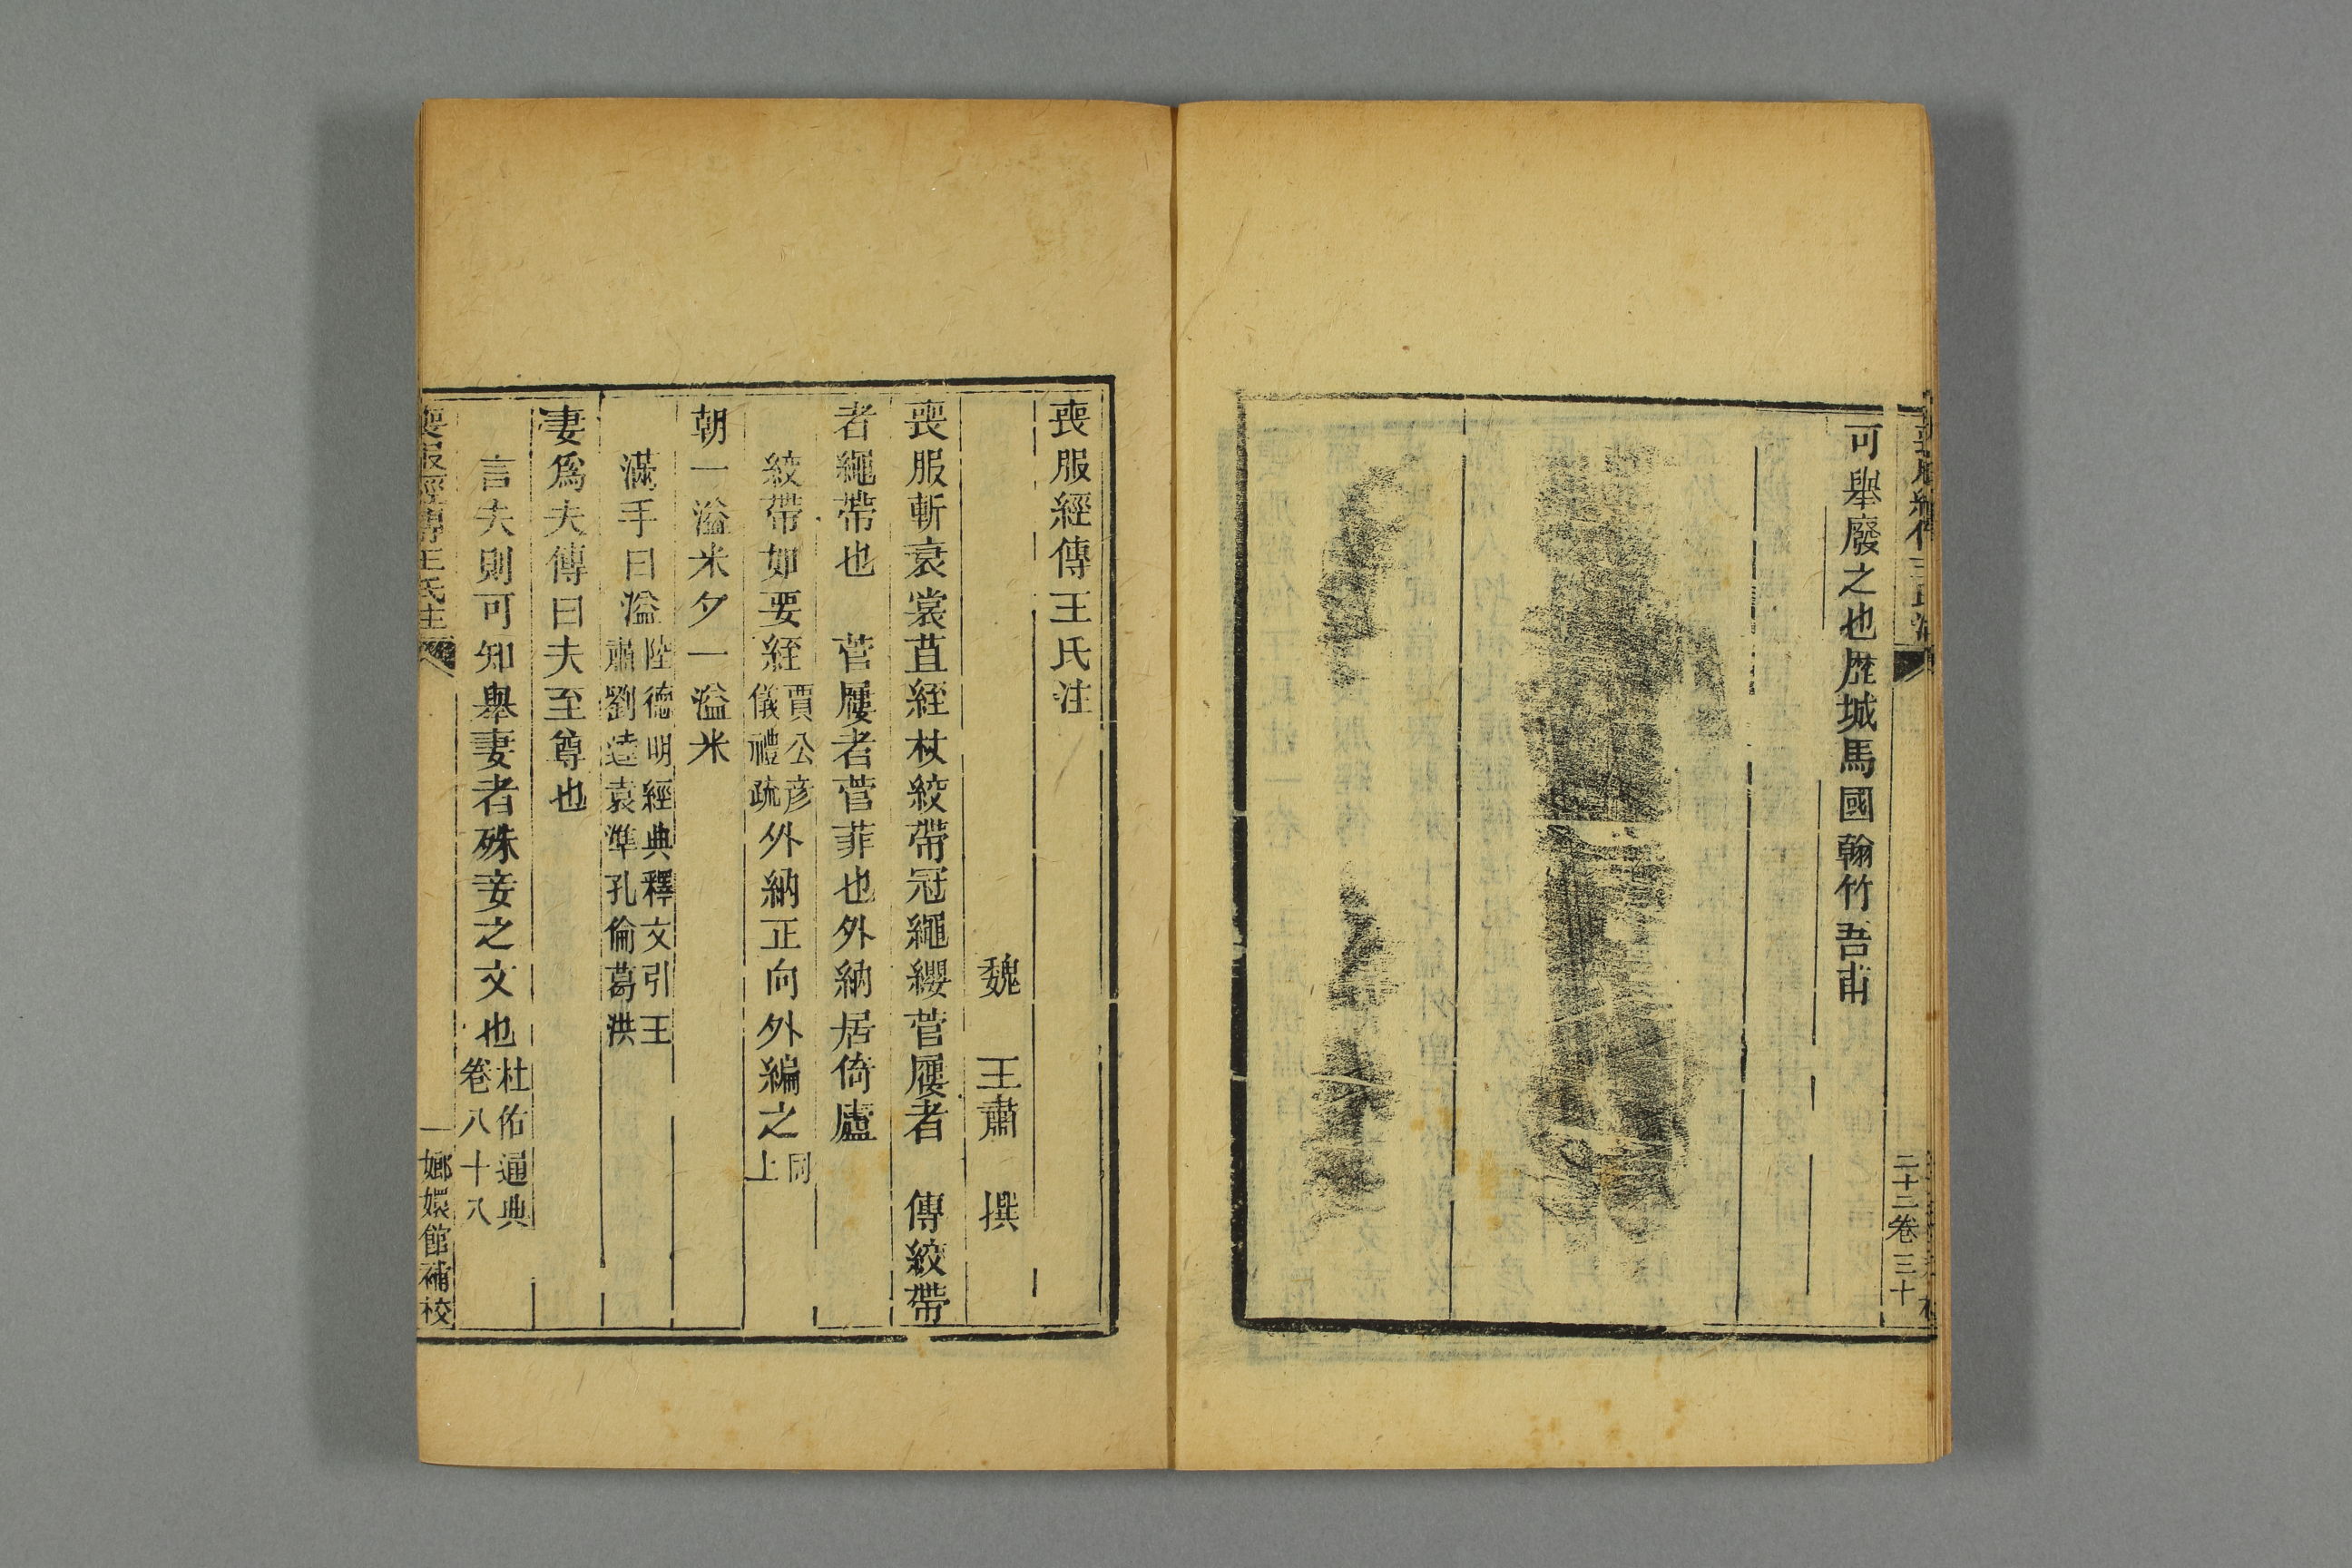 可舉廢之也歷城馬國翰竹吾甫
二十二卷三十
喪服經傳王氏注
魏 王肅 撰
喪服斬衰裳苴絰杖絞帶冠繩纓菅屨者 傳絞帶
者繩帶也 菅屨者菅菲也外納居倚廬
絞帶如要絰賈公彦儀禮疏外納正向外編之同上
朝一溢米夕一溢米
滿手曰溢陸德明經典釋文引王肅劉逵袁準孔倫葛洪
妻爲夫傳曰夫至尊也
言夫則可知舉妻者殊妾之文也杜佑通典卷八十八
喪服經傳王氏注
一 嫏嬛館補校